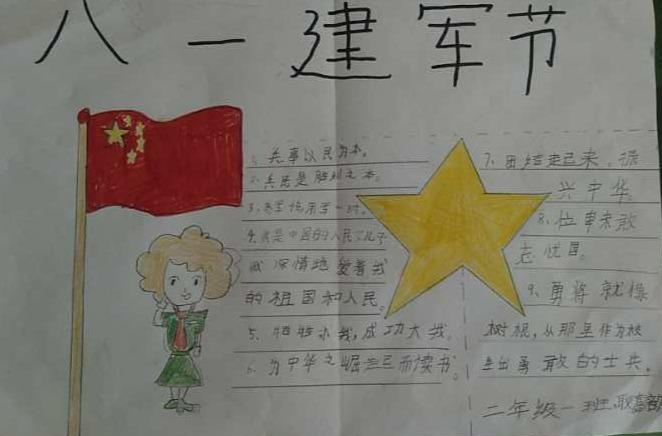 八一建军节
1. 兵事以民为本。
2. 兵民是胜利之本。
4. 我是中国的人民
深情地爱着我
的祖国和人民。
5. 牺牲小我,成功大我。
6. 为中华之崛起而读书。
7. 团结起来,振
兴中华。
8. 位卑未敢
忘忧国。
9. 勇将就像
树根,从那里作为枝
生出勇敢的士兵。
二年级一班